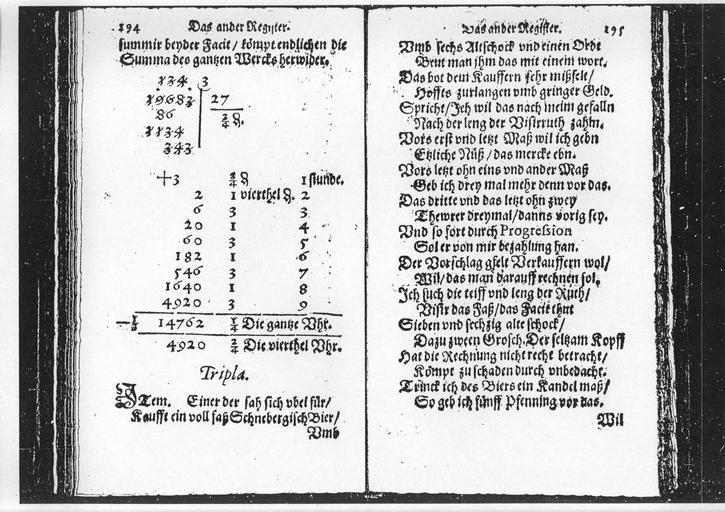 194 Das ander Register.
summir beyder Facit/ kömpt endlichen die
Summa des gantzen Wercks herwider.
134 3
19683 27
86 2/4 ϑ.
1134
343
+3 2/4 ϑ 1 stunde.
2 1 vierthel ϑ. 2
6 3 3
20 1 4
60 3 5
182 1 6
546 3 7
1640 1 8
4920 3 9
14762 1/4 Die gantze Vhr.
4920 2/4 Die vierthel Vhr.
Tripla.
ITem. Einer der sah sich vbel für/
Kaufft ein voll faß Schnebergisch Bier/
Vmb
Das ander Register. 195
Vmb sechs Altschock vnd einen Ortt
Beut man jhm das mit einem wort.
Das bot dem Kauffern sehr mißfelt/
Hoffts zurlangen vmb gringer Geld.
Spricht/ Ich wil das nach meim gefalln
Nach der leng der Visirruth zahln.
Vors erst vnd letzt Maß wil ich gebn
Etzliche Nüß/ das mercke ebn.
Vors letzt ohn eins vnd ander Maß
Geb ich drey mal mehr denn vor das.
Das dritte vnd das letzt ohn zwey
Thewrer dreymal/ danns vorig sey.
Vnd so fort durch Progression
Sol er von mir bezahlung han.
Der Vorschlag gfelt Verkauffern wol/
Wil/ das man darauff rechnen sol.
Ich such die teiff vnd leng der Ruth/
Visir das Faß/ das Facit thut
Sieben vnd sechzig alte schock/
Dazu zween Grosch. Der seltzam Kopff
Hat die Rechnung nicht recht betracht/
Kömpt zu schaden durch vnbedacht.
Trinck ich des Biers ein Kandel maß/
So geb ich fünff Pfenning vor das.
Wil